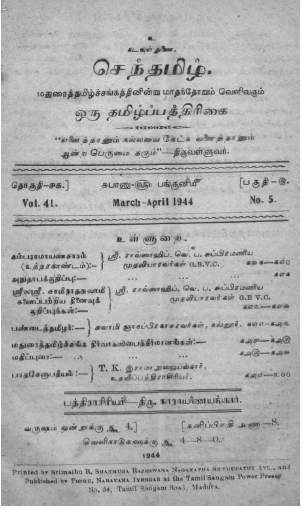 உ
கடவுள் துணை.
செந்தமிழ்.
மதுரைத்தமிழ்ச்சங்கத்தினின்று மாதந்தோறும் வெளிவரும்
ஒரு தமிழ்ப்பத்திரிகை
"எனைத்தானும் நல்லவை கேட்க வனைத்தானும்
ஆன்ற பெருமை தரும்"—திருவள்ளுவர்.
தொகுதி-சக.] சுபானு௵ பங்குனி௴ [பகுதி-ரு.
Vol. 41. March-April 1944 No. 5.
உள்ளுறை.
கம்பராமாயணசாரம்
(உத்தரகாண்டம்):— ஸ்ரீ. ராவ்ஸாஹிப். வெ. ப. சுப்பிரமணிய
முதலியாரவர்கள் G.B.V.C.
அநுதாபக்குறிப்பு:—
ஸ்ரீலஸ்ரீ. சாமிநாததேசுவாமி
குறிப்புக்கள்:— ஸ்ரீ. ராவ்ஸாஹிப். வெ. ப. சுப்பிரமணிய
முதலியாரவர்கள் G.B.V.C.
பண்டைத்தமிழர்:— சுவாமி ஞானப்பிரகாசரவர்கள், நல்லூர்.
மதுரைத்தமிழ்ச்சங்க நிர்வாகசபைத்தீர்மானங்கள்:—
மதிப்புரை:—
பாதசேருபதியம்:— T. K. இராமாநுஜையங்கார்,
உதவிப்பத்திராதிபர்,
பத்திராசிரியர்—திரு. நாராயணையங்கார்.
வருஷம் ஒன்றுக்கு ரூ 4.] [தனிப்பிரதி அணா—8.
வெளிநாடுகளுக்கு ரூ 4—8—0.
1944
Printed by Srimathu R. SHANMUGA RAJESWARA NAGANATHA SETHUPATHY AVL., and
Published by THIRU. NARAYANA IYENGAR at the Tamil Sangam Power Press
No. 54, Tamil Sangam Road, Madura.